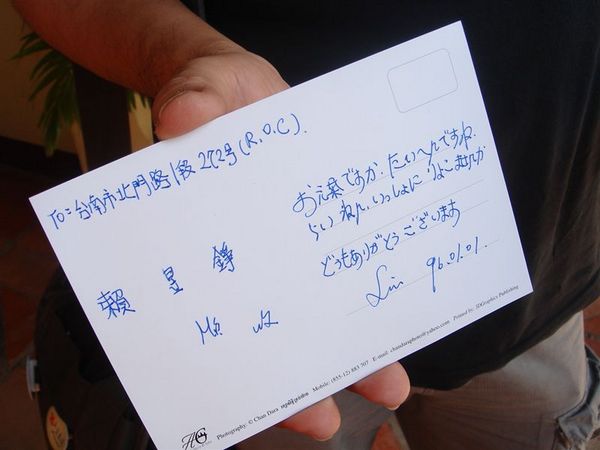 TO: 台南市北門路1段272号(R.O.C).
賴 昱 錚
收
お元気ですか. たいへんですね.
らいねん. いっしょに りょこ ませんか
どうもありがとうございます
Lin 96.01.01.
Photography: © Chan Dara Mobile: (855-12) 883 707 E-mail: chandaraphoto@yahoo.com Printed by: JDGraphics Publishing